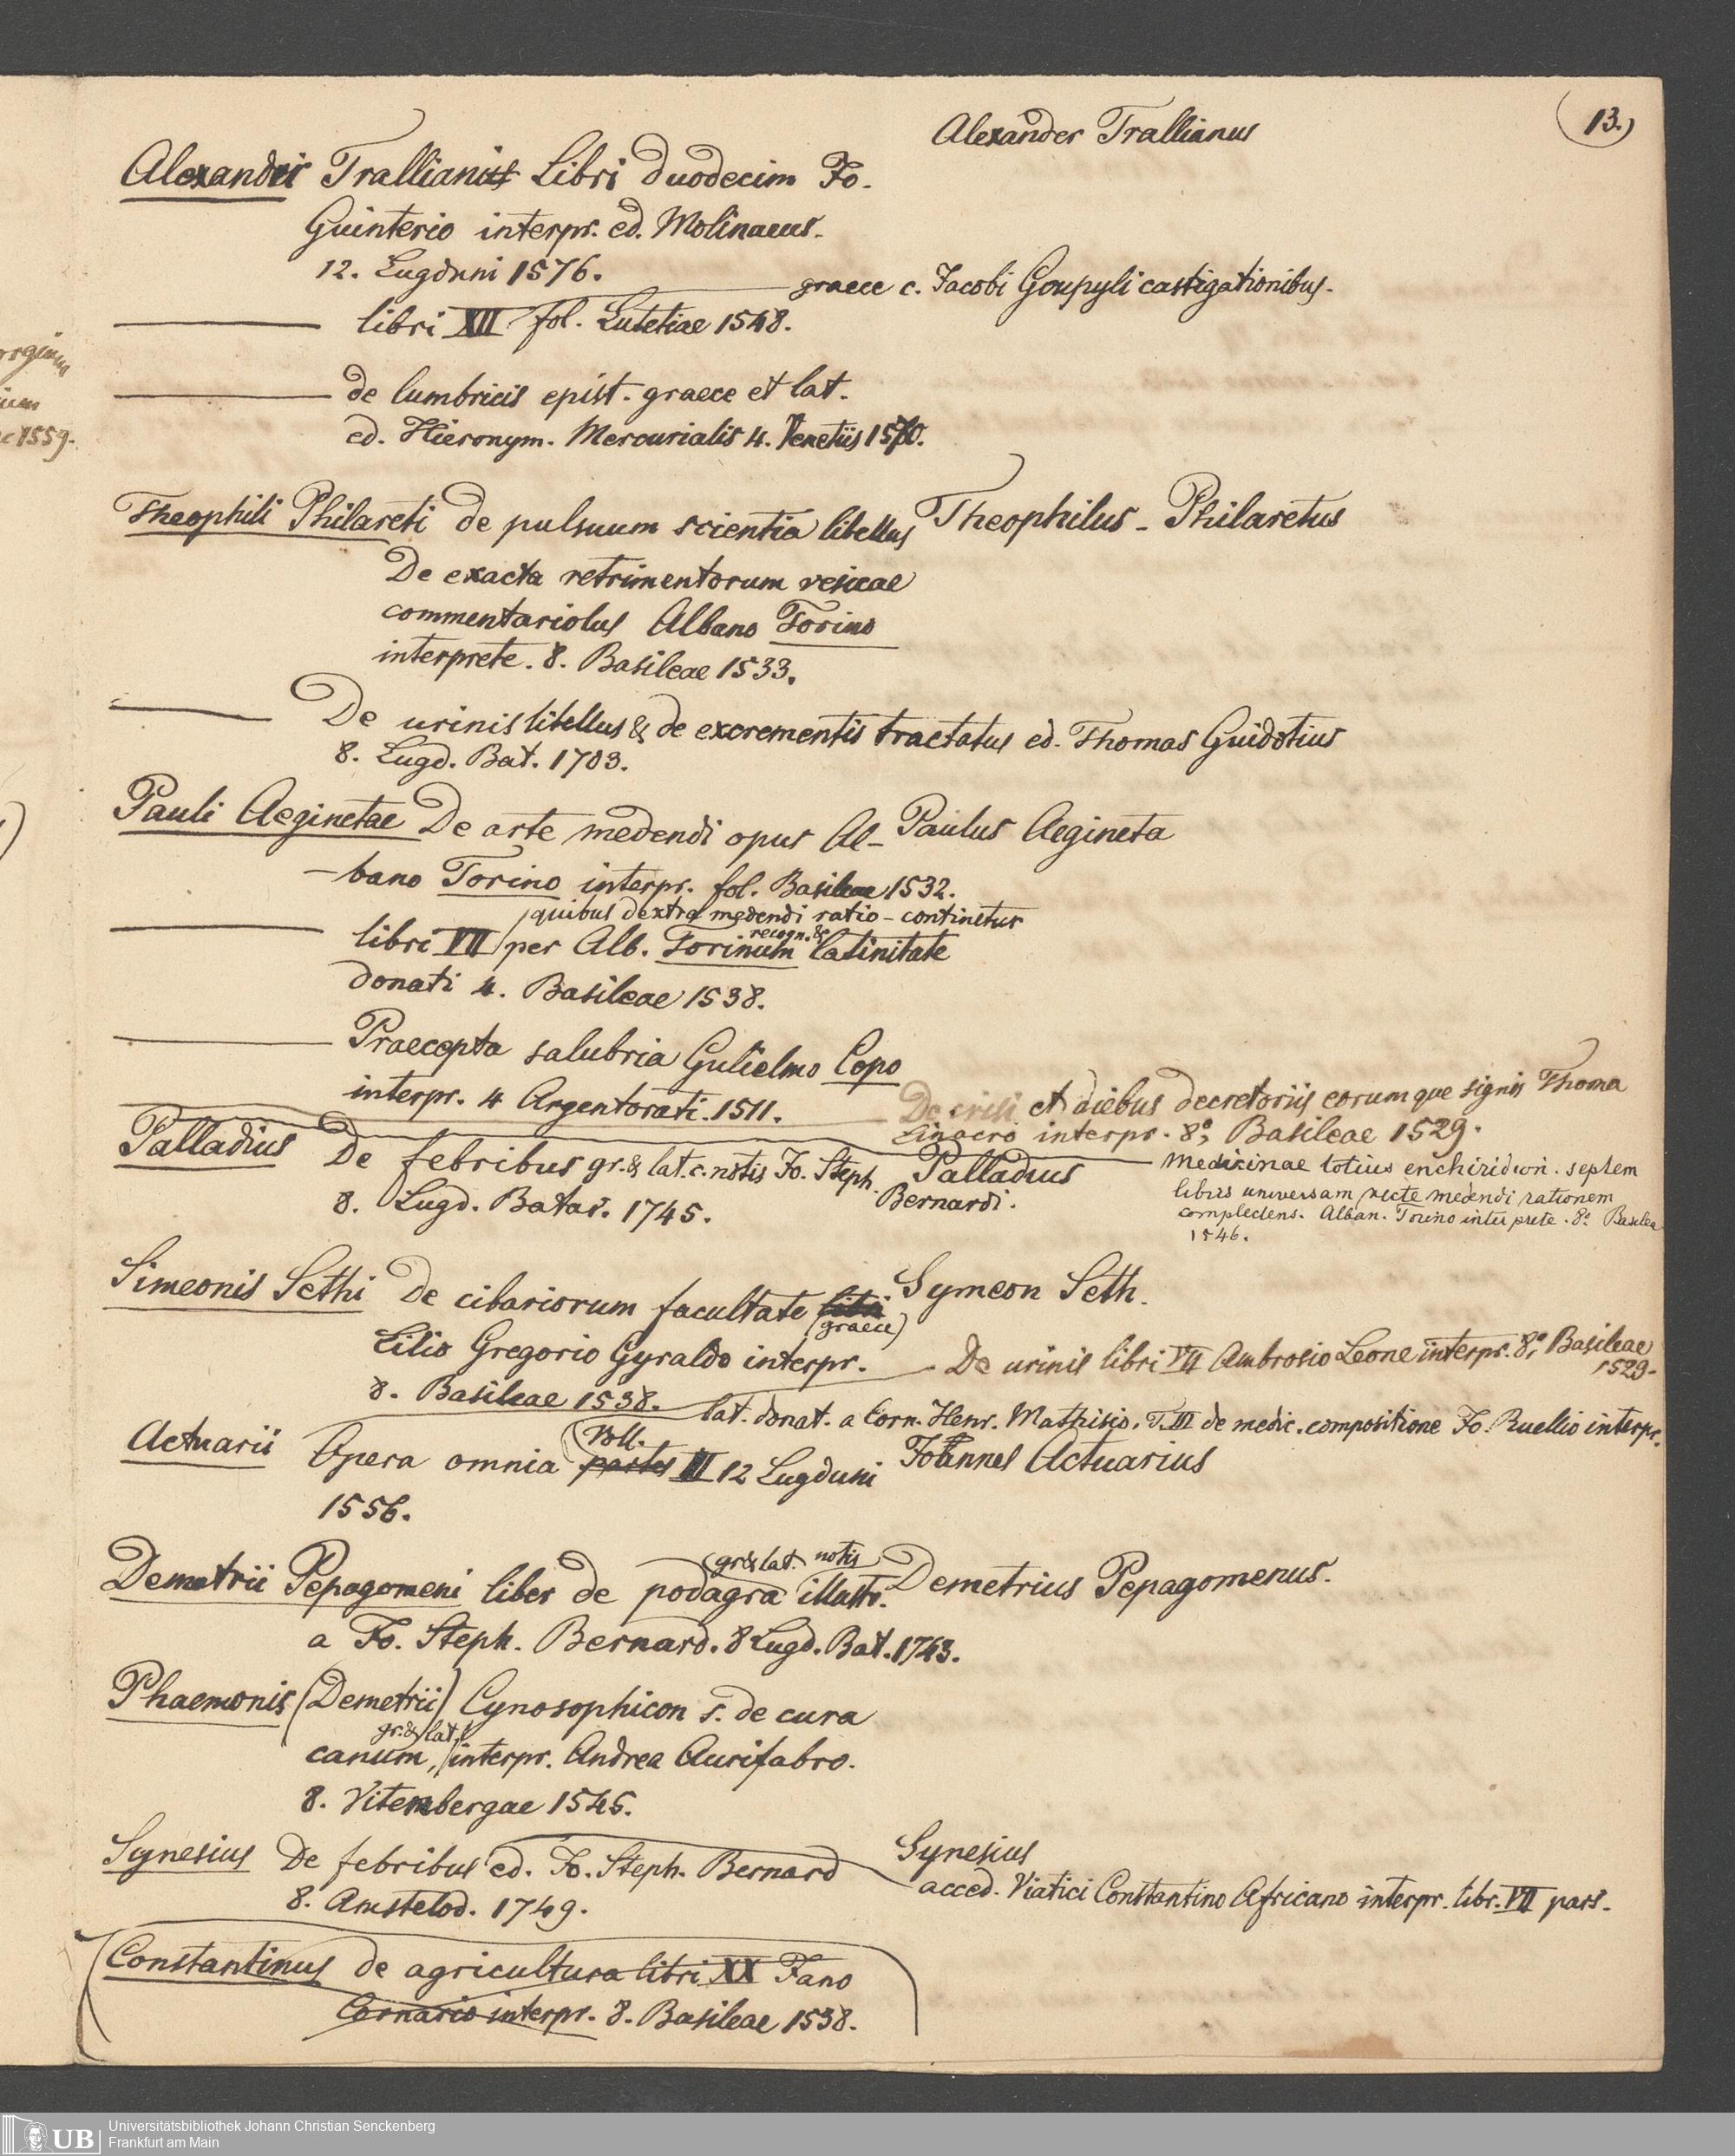 13.)
Alexander Trallianus
Alexandri Tralliani Libri duodecim Jo.
Guinterio interpr. ed. Molinaeus.
12. Lugduni 1576.
libri XII fol. Lutetiae 1548.
graece c. Jacobi Goupyli castigationibus.
de lumbricis epist. graece et lat.
ed. Hieronym. Mercurialis 4. Venetiis 1570.
Theophili Philareti de pulsuum scientia libellus
Theophilus - Philaretus
De exacta retrimentorum vesicae
commentariolus Albano Torino
interprete. 8. Basileae 1533.
De urinis libellus & de excrementis tractatus ed. Thomas Guidotius
8. Lugd. Bat. 1703.
Pauli Aeginetae De arte medendi opus Al-
Paulus Aegineta
-bano Torino interpr. fol. Basileae 1532.
quibus dextra medendi ratio - continetur
recogn. &
libri VII per Alb. Torinum latinitate
donati 4. Basileae 1538.
Praecepta salubria Gulielmo Copo
interpr. 4 Argentorati. 1511.
De crisi et diebus decretoriis eorumque signis Thoma
Linacro interpr. 8°, Basileae 1529.
Medicinae totius enchiridion. septem
libris universam recte medendi rationem
complectens. Alban. Torino interprete. 8° Basilea
1546.
Palladius De febribus gr. & lat. c. notis Jo. Steph.
Bernardi.
Palladius
8. Lugd. Batav. 1745.
Simeonis Sethi De cibariorum facultate
(graece)
Symeon Seth.
Lilio Gregorio Gyraldo interpr.
8. Basileae 1538.
De urinis libri VII Ambrosio Leone interpr. 8°, Basileae
1529.
lat. donat. a Corn. Henr. Mathisio. T. III de medic. compositione Jo. Ruellio interpr.
Actuarii Opera omnia partes III 12 Lugduni
Voll.
Joannes Actuarius
1556.
Demetrii Pepagomeni liber de podagra illustr.
gr & lat. notis
Demetrius Pepagomenus.
a Jo. Steph. Bernard. 8 Lugd. Bat. 1743.
Phaemonis (Demetrii) Cynosophicon s. de cura
gr. & lat.
canum, interpr. Andrea Aurifabro.
8. Vitenbergae 1545.
Synesius De febribus ed. Jo. Steph. Bernard
8. Amstelod. 1749.
Synesius
acced. Viatici Constantino Africano interpr. libr. VII pars.
Constantinus de agricultura libri XX Jano
Cornario interpr. 8. Basileae 1538.
1559.
UB
Universitätsbibliothek Johann Christian Senckenberg
Frankfurt am Main